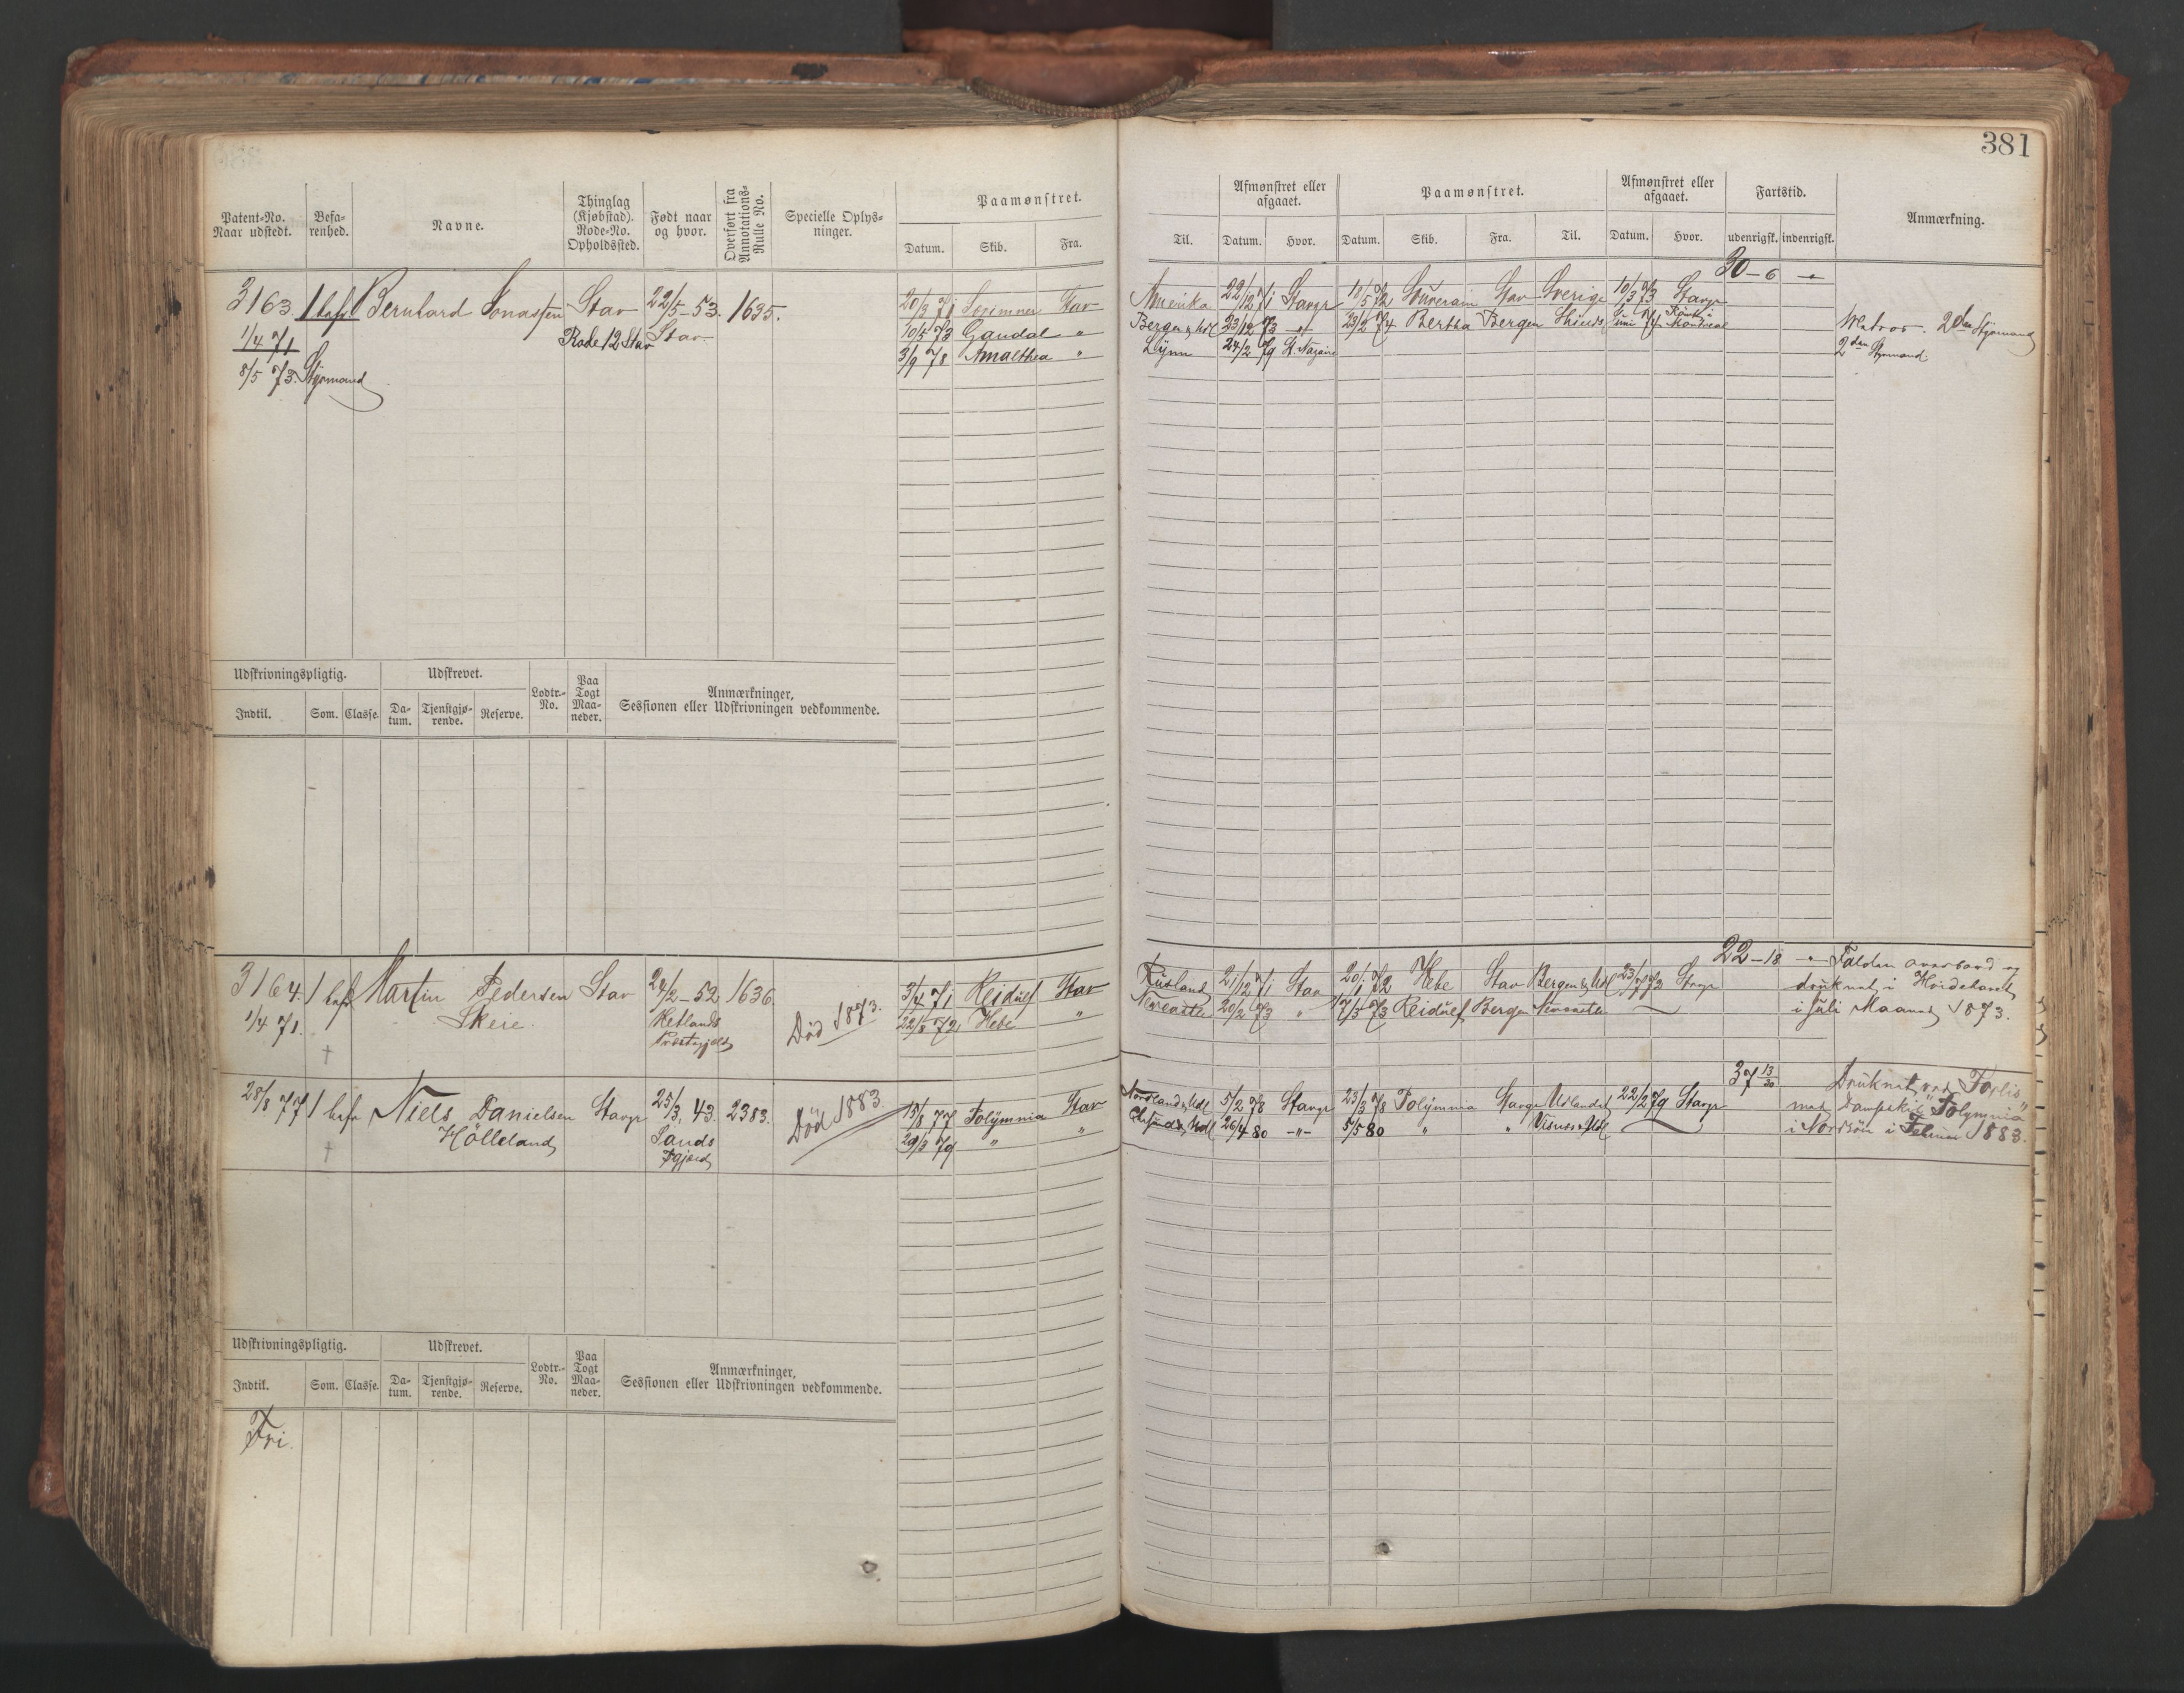 381
Patent-No.
Naar udstedt.
Befa-
renhed.
Navne.
Thinglag
(Kjøbstad).
Rode-No.
Opholdssted.
Født naar
og hvor.
Overført fra
Annotations-
Rulle No.
Specielle Oplys-
ninger.
Paamønstret.
Datum. Skib. Fra.
Til.
Afmønstret eller
afgaaet.
Datum. Hvor.
Paamønstret.
Datum. Skib. Fra. Til.
Afmønstret eller
afgaaet.
Datum. Hvor.
Fartstid.
udenrigsk. indenrigsk.
Anmærkning.
3163. 1 bef Bernhard Jonassen Stav 22/5-53. 1635.
1/4 71 Rode 12 Stav Stav.
8/5 73. Styrmand
20/3 71 Stav
10/5 73 Gaudal "
3/9 78 Amalthea "
30-6 "
Amerika 22/12 71 Stavgr 10/5 72 Süverain Stav Sverige 10/3 73 Stavgr
Bergen & Udl 23/12 73 " 23/2 74 Bertha Bergen Matros. 2den Styrmand
Lynn 24/2 79 St. Nazaire 2den Styrmand
Udskrivningspligtig. Udskrevet. Lodtr.-
No. Paa
Togt
Maa-
neder. Anmærkninger,
Sessionen eller Udskrivningen vedkommende.
Indtil. Som. Classe. Da-
tum. Tjenstgjø-
rende. Reserve.
3164. 1 bef Martin Pedersen Stav 24/2-52 1636.
1/4 71. Skeie. Hetlands
Præstegjeld
† Død 1873.
3/4 71 Reidulf Stav
22/3 72 Hebe "
22-18 "
Rüsland 21/12 71 Stav 20/1 72 Hebe Stav Bergen & Udl 23/7 73 Stavgr
Newcastle 20/2 73 " 17/3 73 Reidulf Bergen Newcastle
Falden overbord og
druknet i Hvidehavet
i Juli Maaned 1873.
28/8 77 1 bef Niels Danielsen Stavgr 25/3. 43. 2383.
Hölleland Sands
Pgjeld
† Død 1883.
15/8 77 Polymnia Stav
29/3 79 " "
37 13/30
Nordland & Udl 5/2 78 Stavgr 23/3 78 Polymnia Stavgr Udlandet 22/2 79 Stavgr
26/4 80 -"- 5/5 80 " "
Druknet ved Forlis
med Dampskib "Polymnia"
i Nordsöen i Februar 1883.
Udskrivningspligtig. Udskrevet. Lodtr.-
No. Paa
Togt
Maa-
neder. Anmærkninger,
Sessionen eller Udskrivningen vedkommende.
Indtil. Som. Classe. Da-
tum. Tjenstgjø-
rende. Reserve.
Fri.